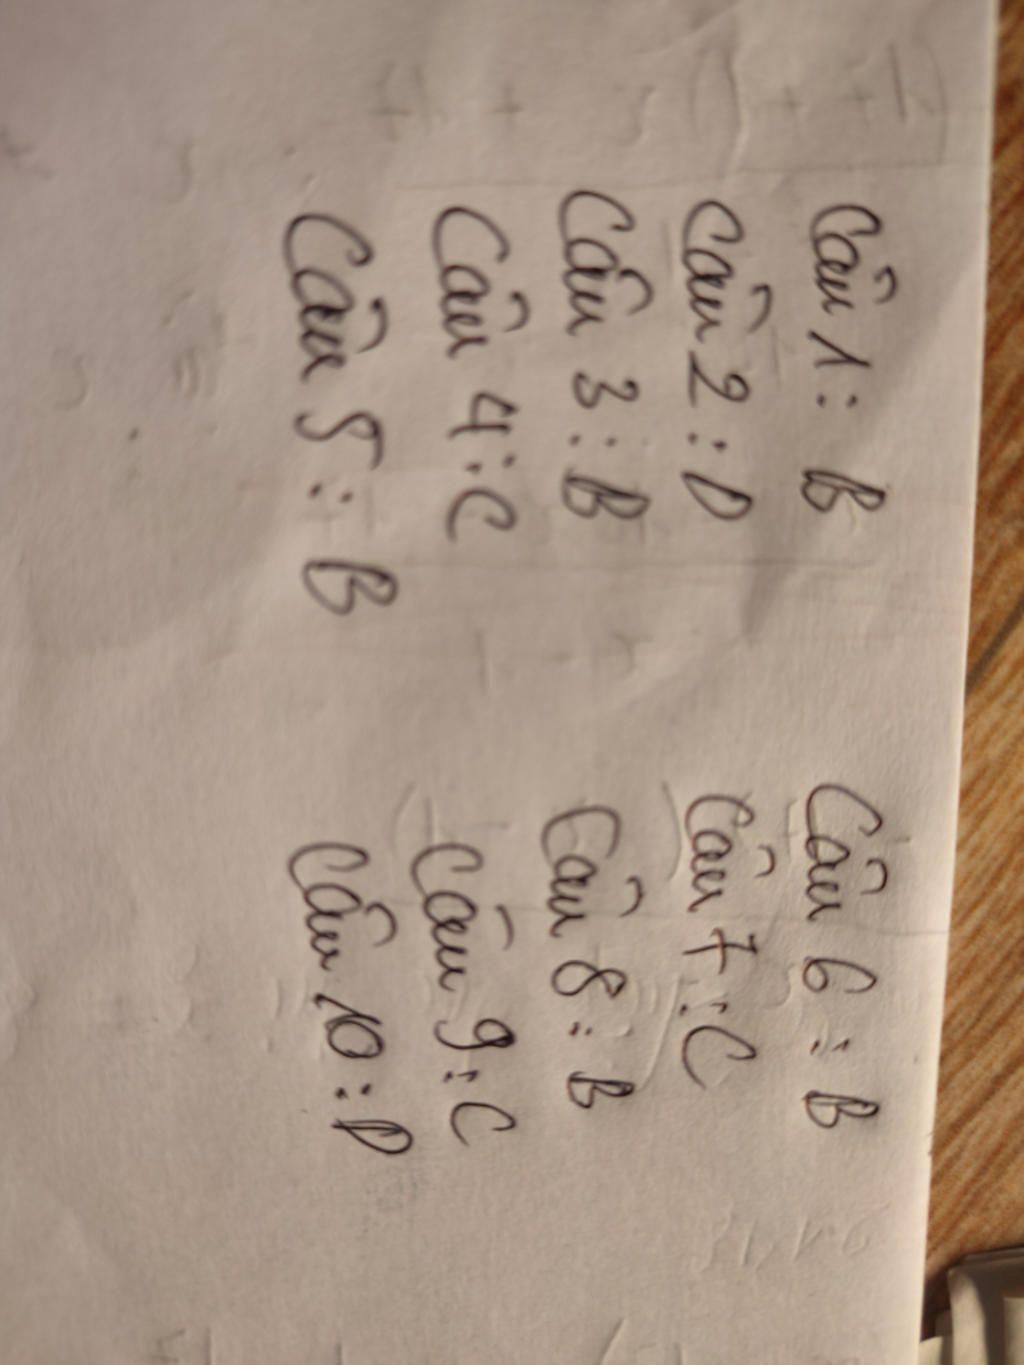 Câu 1: B
Câu 2: D
Câu 3: B
Câu 4: C
Câu 5: B
Câu 6: B
Câu 7: C
Câu 8: B
Câu 9: C
Câu 10: D